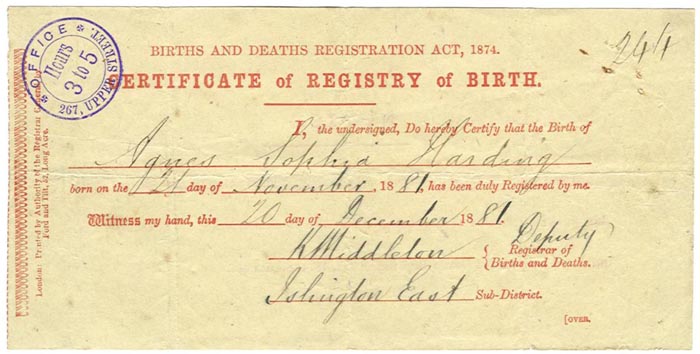 OFFICE
Hours
3 to 5
267, UPPER STREET.
244
BIRTHS AND DEATHS REGISTRATION ACT, 1874.
CERTIFICATE of REGISTRY of BIRTH.
I, the undersigned, Do hereby Certify that the Birth of
Agnes Sophia Harding
born on the 21 day of November, 1881, has been duly Registered by me.
Witness my hand, this 20 day of December 1881.
K Middleton Deputy Registrar of Births and Deaths.
Islington East Sub-District.
[OVER.
London: Printed by Authority of the Registrar
Ford and Tilt, Long Acre.